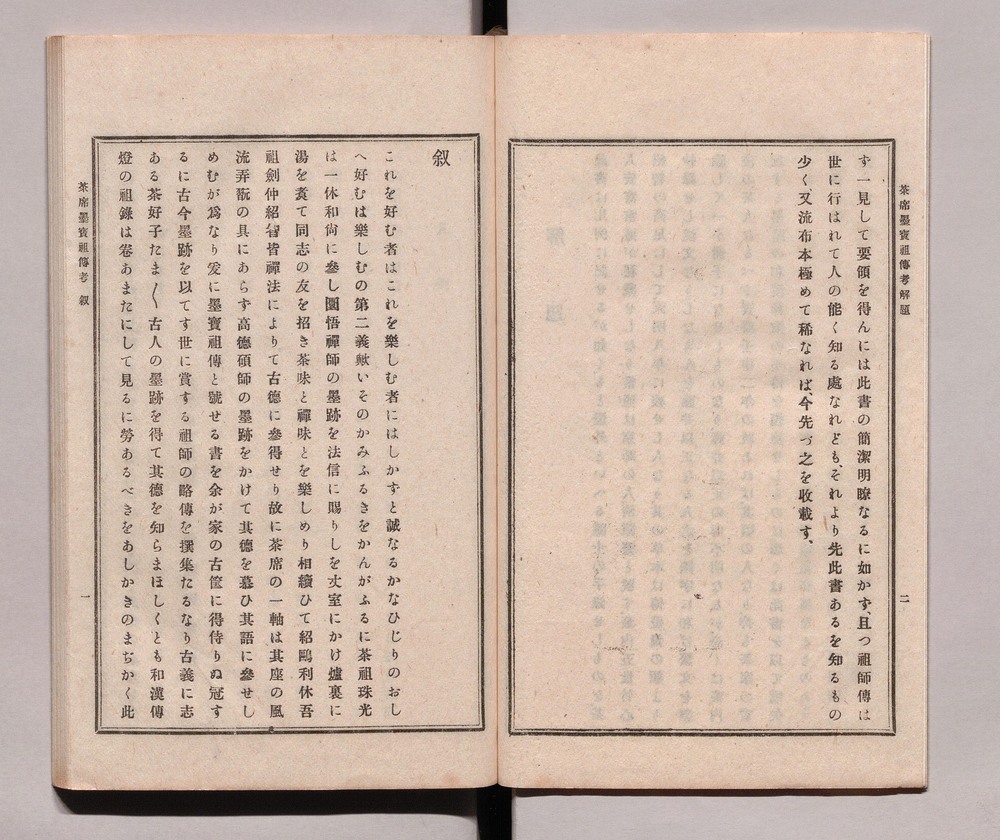 茶席墨寶祖傳考解題
ず一見して要領を得んには此書の簡潔明瞭なるに如かず、且つ祖師傳は
世に行はれて人の能く知る處なれども、それより先此書あるを知るもの
少く、又流布本極めて稀なれば、今先づ之を收載す、
二
叙
これを好む者はこれを樂しむ者にはしかずと誠なるかなひじりのおし
へ好むは樂しむの第二義歟いそのかみふるきをかんがふるに茶祖珠光
は一休和尙に參し圜悟禪師の墨跡を法信に賜りしを丈室にかけ爐裏に
湯を煑て同志の友を招き茶味と禪味とを樂しめり相續ひて紹鷗利休吾
祖劍仲紹智皆禪法によりて古德に參得せり故に茶席の一軸は其座の風
流弄翫の具にあらす高德碩師の墨跡をかけて其德を慕ひ其語に參せし
めむが爲なり爰に墨寶祖傳と號せる書を余が家の古筐に得侍りぬ冠す
るに古今墨跡を以てす世に賞する祖師の略傳を撰集たるなり古義に志
ある茶好子たま〱古人の墨跡を得て其德を知らまほしくとも和漢傳
燈の祖錄は卷あまたにして見るに勞あるべきをあしかきのまぢかく此
茶席墨寶祖傳考 叙
一